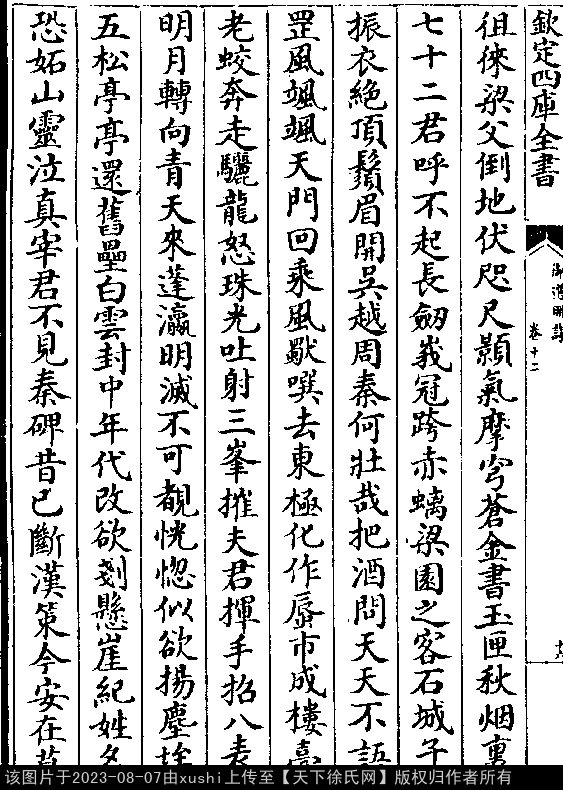 欽定四庫全書
御選明詩
卷十二
徂徠梁父倒地伏咫尺顥氣摩穹蒼金書玉匣秋烟裏
七十二君呼不起長劒峩冠跨赤螭梁園之客石城子
振衣絶頂鬚眉開吳越周秦何壯哉把酒問天天不語
罡風颯颯天門回乘風歘噀去東極化作蜃市成樓臺
老蛟奔走驪龍怒珠光吐射三峯摧夫君揮手招八表
明月轉向青天來蓬瀛明滅不可覩恍惚似欲揚塵埃
五松亭亭還舊壘白雲封中年代改欲剗懸崖紀姓名
恐妬山靈泣真宰君不見秦碑昔已斷漢策今安在
该图片于2023-08-07由xushi上传至【天下徐氏网】版权归作者所有